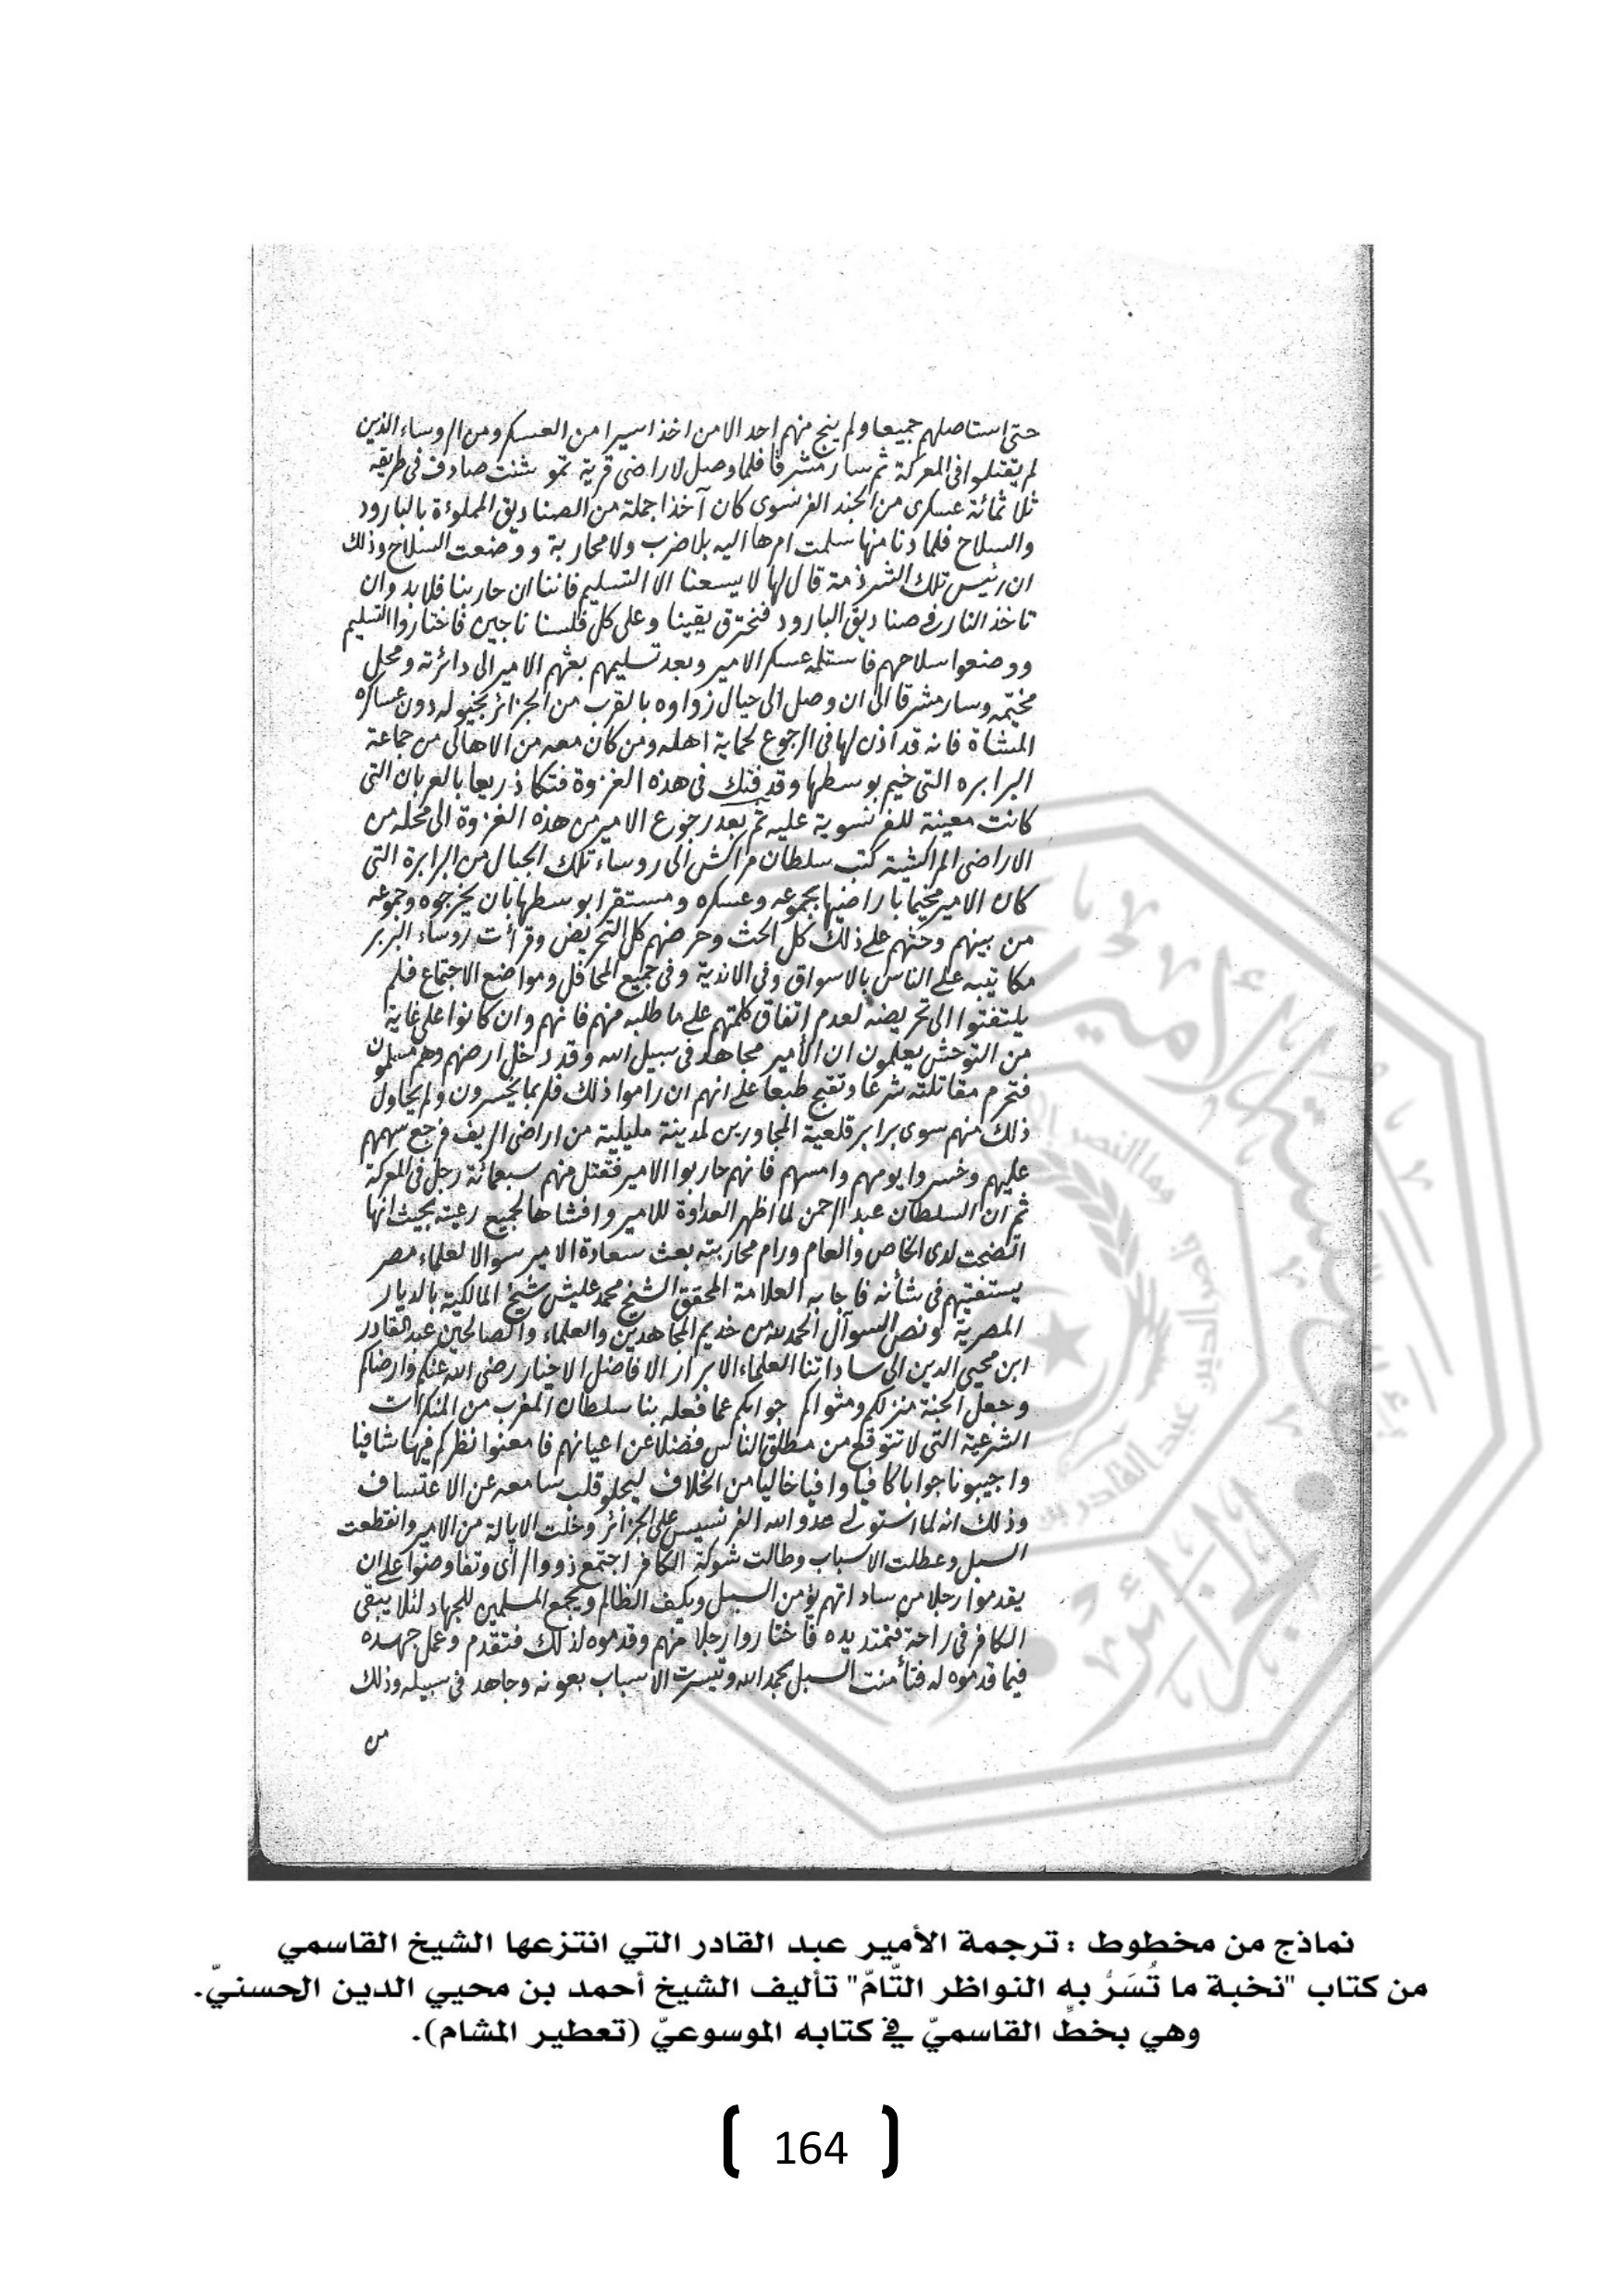 حتى استاصلهم جميعا ولم ينج منهم احد الا من اخذ اسيرا من العسكر ومن الروساء الذين
لم يقتلوا فى المعركة ثم سار مشرقا فلما وصل لاراضى قرية تموشنت صادف فى طريقه
ثلاثمائة عسكرى من الجند الفرنسوى كان آخذا جملة من الصناديق المملوءة بالبارود
والسلاح فلما دنا منها سلمت امرها اليه بلا ضرب ولا محاربة ووضعت السلاح وذلك
ان رئيس تلك الشرذمة قال لها لا يسعنا الا التسليم فاننا ان حاربنا فلا بد وان
تاخذ النار فى صناديق البارود فنحترق يقينا وعلى كل فلسنا ناجين فاختاروا التسليم
ووضعوا سلاحهم فاستلمه عسكر الامير وبعد تسليمهم بعثهم الامير الى دائرته ومحل
مخيمه وسار مشرقا الى ان وصل الى جبال زواوه بالقرب من الجزائر بخيوله دون عساكره
المشاة فانه قد اذن لها فى الرجوع لحماية اهله ومن كان معه من الاهالى من جماعة
البرابره التى خيم بوسطها وقد فتك فى هذه الغزوة فتكا ذريعا بالعربان التى
كانت معينة للفرنسوية عليه ثم بعد رجوع الامير من هذه الغزوة الى محله من
الاراضى المراكشية كتب سلطان مراكش الى روساء تلك الجبال من البرابرة التى
كان الامير مخيما باراضيها بجموعه وعسكره ومستقرا بوسطها بان يخرجوه وجموعه
من بينهم وحثهم على ذلك كل الحث وحرضهم كل التحريض وقرأت روساء البربر
مكاتيبه على الناس بالاسواق وفى الاندية وفى جميع المحافل ومواضع الاجتماع فلم
يلتفتوا الى تحريضه لعدم اتفاق كلمتهم على ما طلبه منهم فانهم وان كانوا على غاية
من التوحش يعلمون ان الأمير مجاهد فى سبيل الله وقد دخل ارضهم وهم مسلمون
فتحرم مقاتلته شرعا وتقبح طبعا على انهم ان راموا ذلك فلربما يخسرون ولم يحاول
ذلك منهم سوى برابر قلعية المجاورين لمدينة مليلية من اراضى الريف فرجع سهمهم
عليهم وخسروا يومهم وامسهم فانهم حاربوا الامير فقتل منهم سبعمائة رجل فى المعركة
ثم ان السلطان عبد الرحمن لما اظهر العداوة للامير وافشاها لجميع رعيته بحيث انها
اتضحت لدى الخاص والعام ورام محاربته بعث سعادة الامير سوالا لعلماء مصر
يستفتيهم فى شأنه فاجابه العلامة المحقق الشيخ محمد عليش شيخ المالكية بالديار
المصرية ونص السوآل الحمد لله من خديم المجاهدين والعلماء والصالحين عبد القادر
ابن محيى الدين الى ساداتنا العلماء الابرار الافاضل الاخيار رضى الله عنكم وارضاكم
وجعل الجنة منزلكم ومثواكم جوابكم عما فعله بنا سلطان المغرب من المنكرات
الشرعية التى لا تتوقع من مطلق الناس فضلا عن اعيانهم فامعنوا نظركم فيها شافيا
واجيبونا جوابا كافيا وافيا خاليا من الخلاف ليخلو قلب سامعه عن الاعتساف
وذلك انه لما استولى عدو الله الفرنسيس على الجزائر وخلت الايالة من الامير وانقطعت
السبل وعطلت الاسباب وطالت شوكة الكافر اجتمع ذووا الرأى وتفاوضوا على ان
يقدموا رجلا من ساداتهم يؤمن السبل ويكف الظالم ويجمع المسلمين للجهاد لئلا يبقى
الكافر فى راحة فتمتد يده فاختاروا رجلا منهم وقدموه لذلك فتقدم وعمل جهده
فيما قدموه له فتأمنت السبل بحمد الله وتيسرت الاسباب بعونه وجاهد فى سبيله وذلك
من
نماذج من مخطوط : ترجمة الأمير عبد القادر التي انتزعها الشيخ القاسمي
من كتاب "نخبة ما تُسَرُّ به النواظر التّامّ" تأليف الشيخ أحمد بن محيي الدين الحسنيّ.
وهي بخطِّ القاسميّ في كتابه الموسوعيّ (تعطير المشام).
164